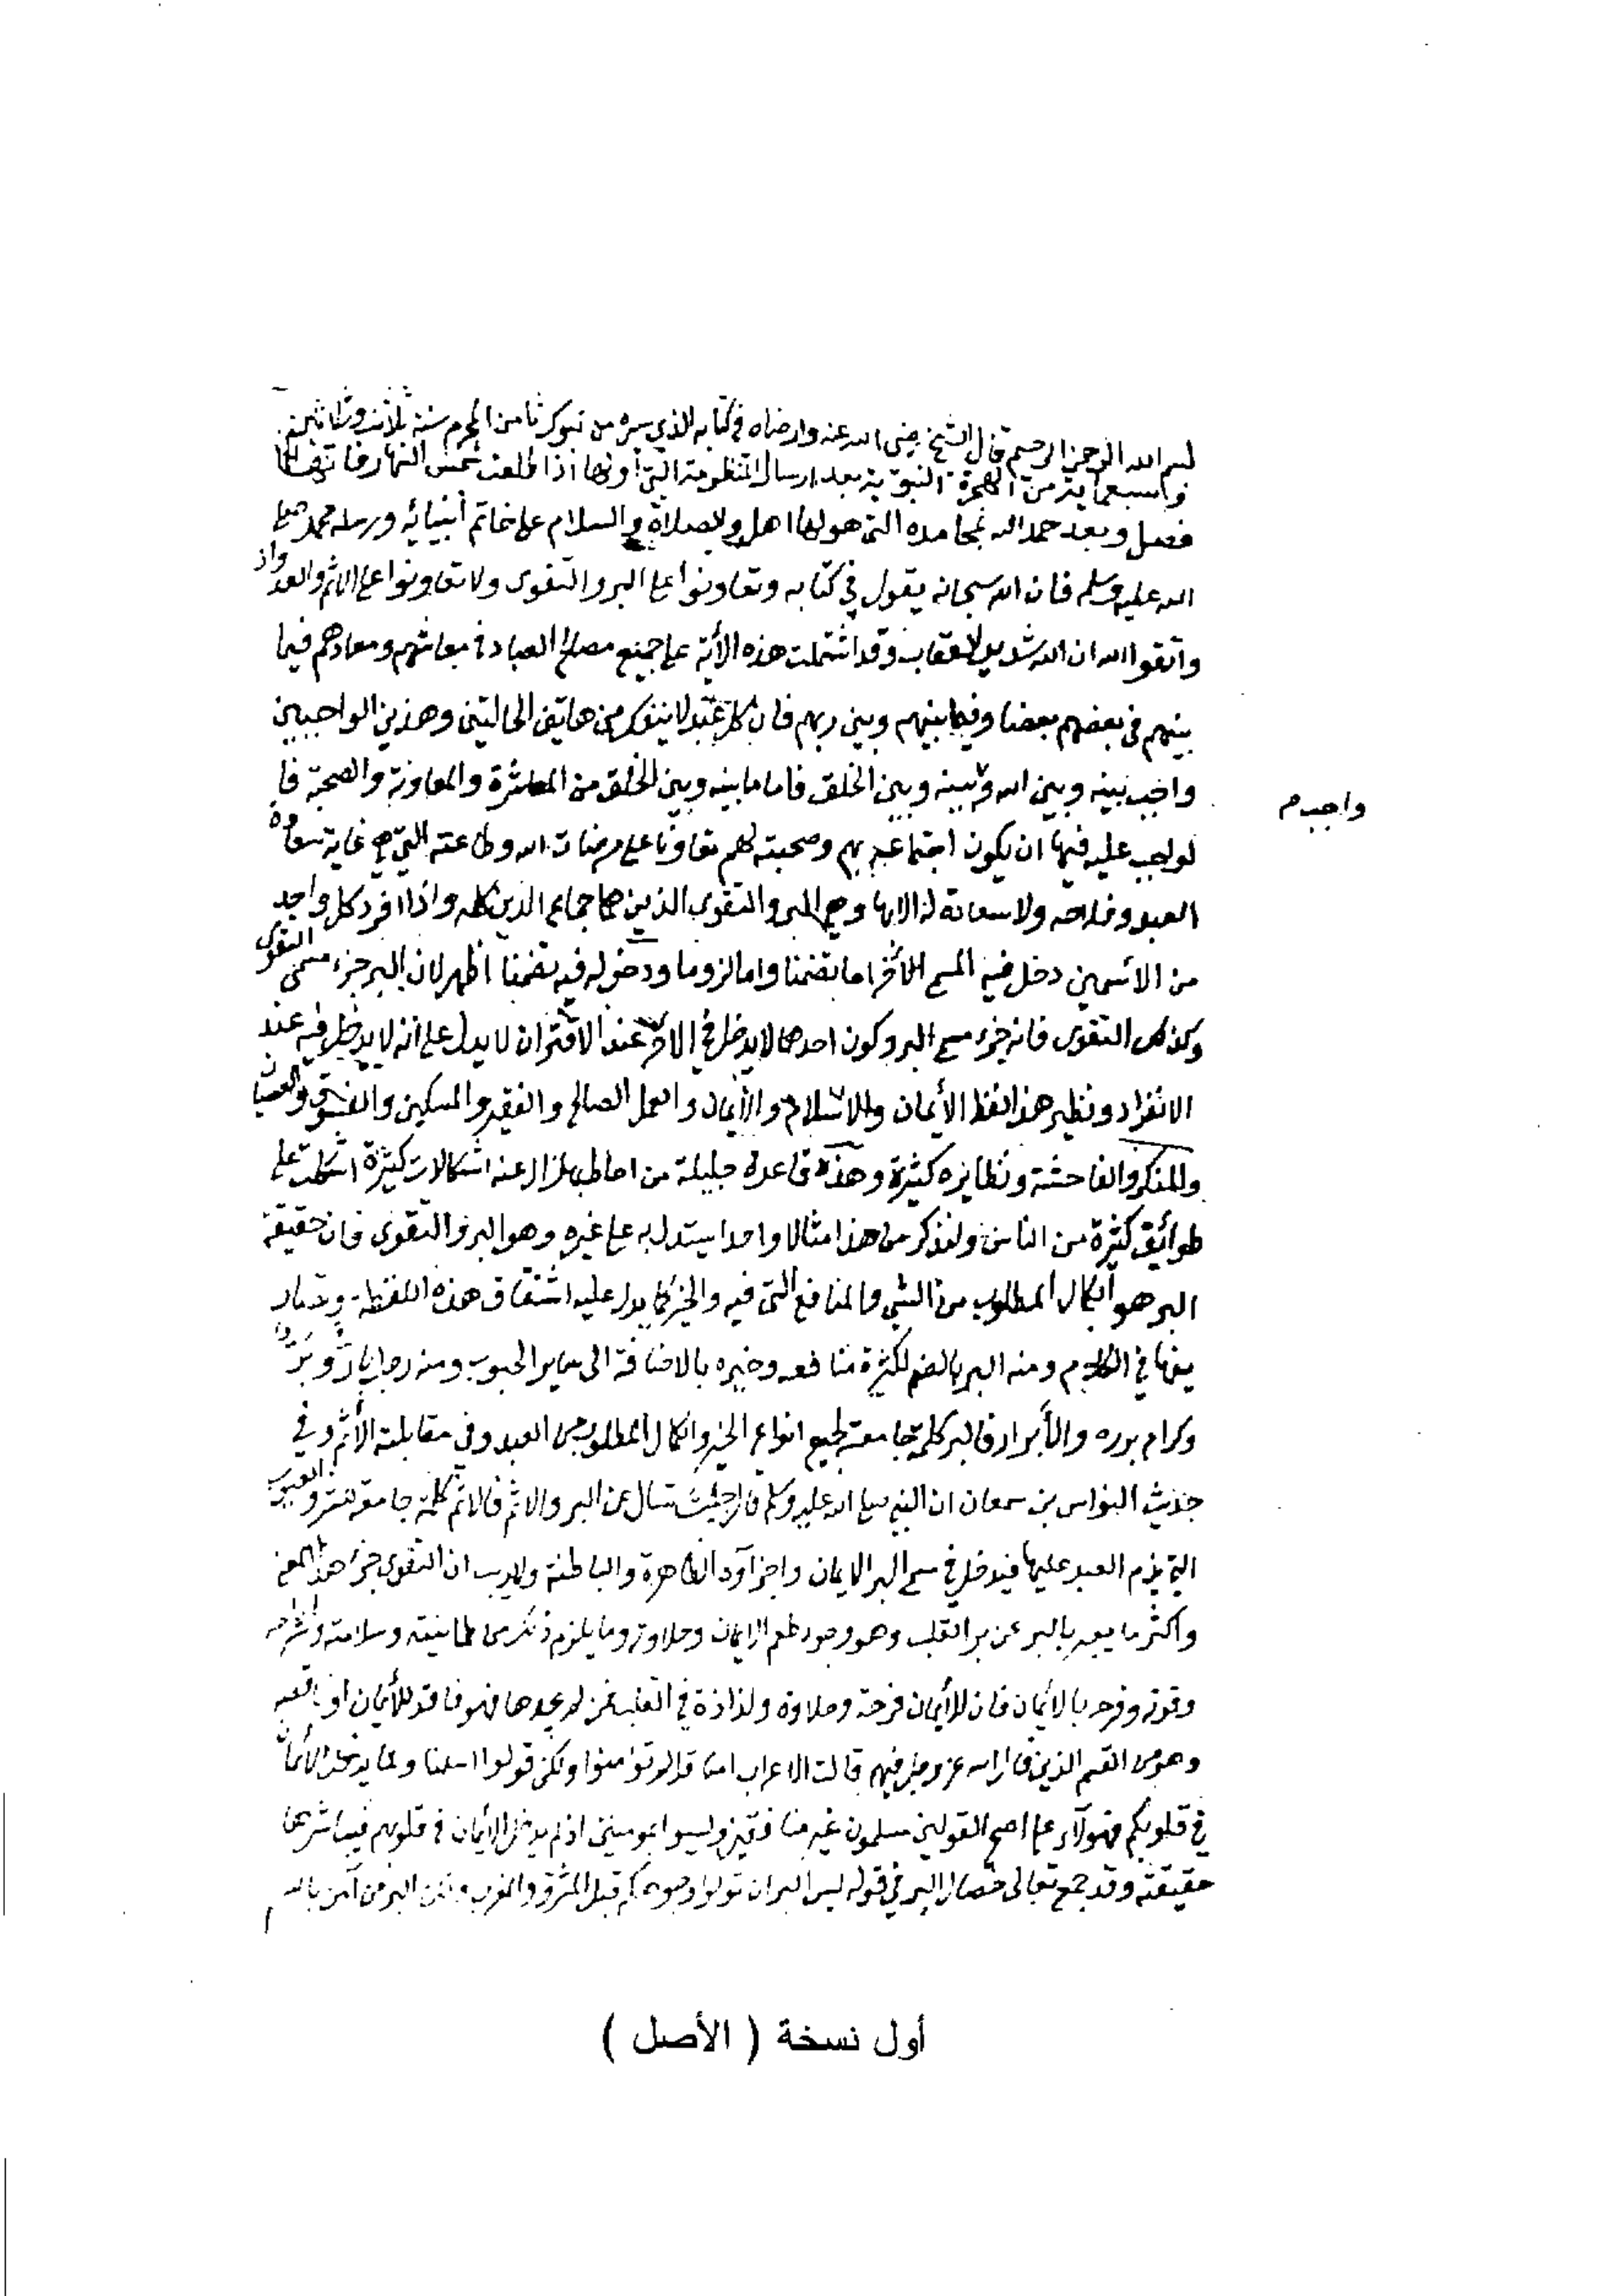 بسم الله الرحمن الرحيم قال الشيخ رضي الله عنه وارضاه في كتابه الذي سيره من تبوك ثامن المحرم سنة ثلاث وثلاثين
وسبعماية من الهجرة النبوية بعد ارسال المنظومة التي أولها اذا طلعت شمس النهار فانها
فصل وبعد حمد الله بمحامده التي هو لها اهل والصلاة والسلام على خاتم أنبيائه ورسله محمد صلى
الله عليه وسلم فان الله سبحانه يقول في كتابه وتعاونوا على البر والتقوى ولا تعاونوا على الاثم والعدوان
واتقوا الله ان الله شديد العقاب وقد اشتملت هذه الأية على جميع مصالح العباد في معاشهم ومعادهم فيما
بينهم في بعضهم بعضا وفيما بينهم وبين ربهم فان كل عبد لا ينفك من هاتين الحالتين وهذين الواجبين
واجب بينه وبين الله وبينه وبين الخلق فاما ما بينه وبين الخلق من المعاشرة والمعاونة والصحبة فا
واجب م
لواجب عليه فيها ان يكون اجتماعه بهم وصحبته لهم تعاونا على مرضات الله وطاعته التي هي غاية سعادة
العبد وفلاحه ولا سعادة له الا بها وهي البر والتقوى الذين هما جماع الدين كله واذا افرد كل واحد
من الاسمين دخل فيه المسمى الأخر اما تضمنا واما لزوما ودخوله فيه تضمنا اظهر لان البر جزء مسمى التقوى
وكذلك التقوى فانه جزء مسمى البر وكون احدهما لا يدخل في الاخر عند الاقتران لا يدل على انه لا يدخل فيه عند
الانفراد ونظير هذا لفظ الأيمان والاسلام والأيمان والعمل الصالح والفقير والمسكين والفسوق والعصيان
والمنكر والفاحشة ونظايره كثيرة وهذه قاعدة جليلة من احاط بها زال عنه اشكالات كثيرة اشكلت على
طوائف كثيرة من الناس ولنذكر من هذا مثالا واحدا يستدل به على غيره وهو البر والتقوى فان حقيقة
البر هو الكمال المطلوب من الشي والمنافع التي فيه والخير كما يدل عليه اشتقاق هذه اللفظة وتصار
يفها في الكلام ومنه البر بالضم لكثرة منافعه وخيره بالاضافة الى ساير الحبوب ومنه رجل بارٌّ وبَرٌّ
وكرام برره والأبرار فالبر كلمة جامعة لجميع انواع الخير والكمال المطلوب من العبد وفي مقابلته الأثم وفي
حديث النواس بن سمعان ان النبي صلى الله عليه وسلم قال جئت تسال عن البر والاثم فالاثم كلمة جامعة للشر والعيوب
التي يذم العبد عليها فيدخل في مسمى البر الايمان واجزآوه الظاهرة والباطنة ولا ريب ان التقوى جزء هذا المعنى
واكثر ما يعبر بالبر عن بر القلب وهو وجود طعم الايمان وحلاوته وما يلزم ذلك من طمانينته وسلامته وانشراحه
وقوته وفرحه بالايمان فان للأيمان فرحة وحلاوة ولذاذة في القلب فمن لم يجدها فهو فاقد للأيمان او ناقصه
وهو من القسم الذين قال الله عز وجل فيهم قالت الاعراب امنا قل لم تؤمنوا ولكن قولوا اسلمنا ولما يدخل الأيمان
في قلوبكم فهولآء على اصح القولين مسلمون غير منافقين وليسوا بمومنين اذ لم يدخل الأيمان في قلوبهم فيباشرها
حقيقته وقد جمع تعالى خصال البر في قوله ليس البر ان تولوا وجوهكم قبل المشرق والمغرب ولكن البر من آمن بالله
أول نسخة ( الأصل )